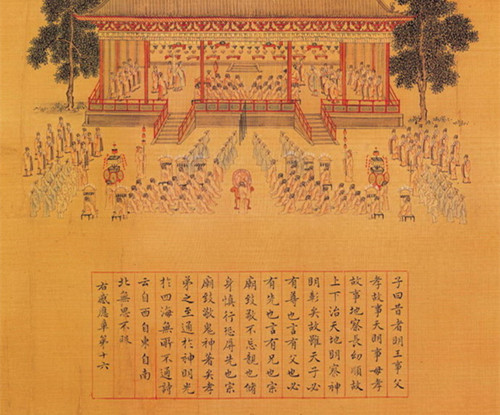 子曰昔者明王事父
孝故事天明事母孝
故事地察長幼順故
上下治天地明察神
明彰矣故雖天子必
有尊也言有父也必
有先也言有兄也宗
廟致敬不忘親也脩
身慎行恐辱先也宗
廟致敬鬼神著矣孝
弟之至通於神明光
於四海無所不通詩
云自西自東自南自
北無思不服
右感應章第十六